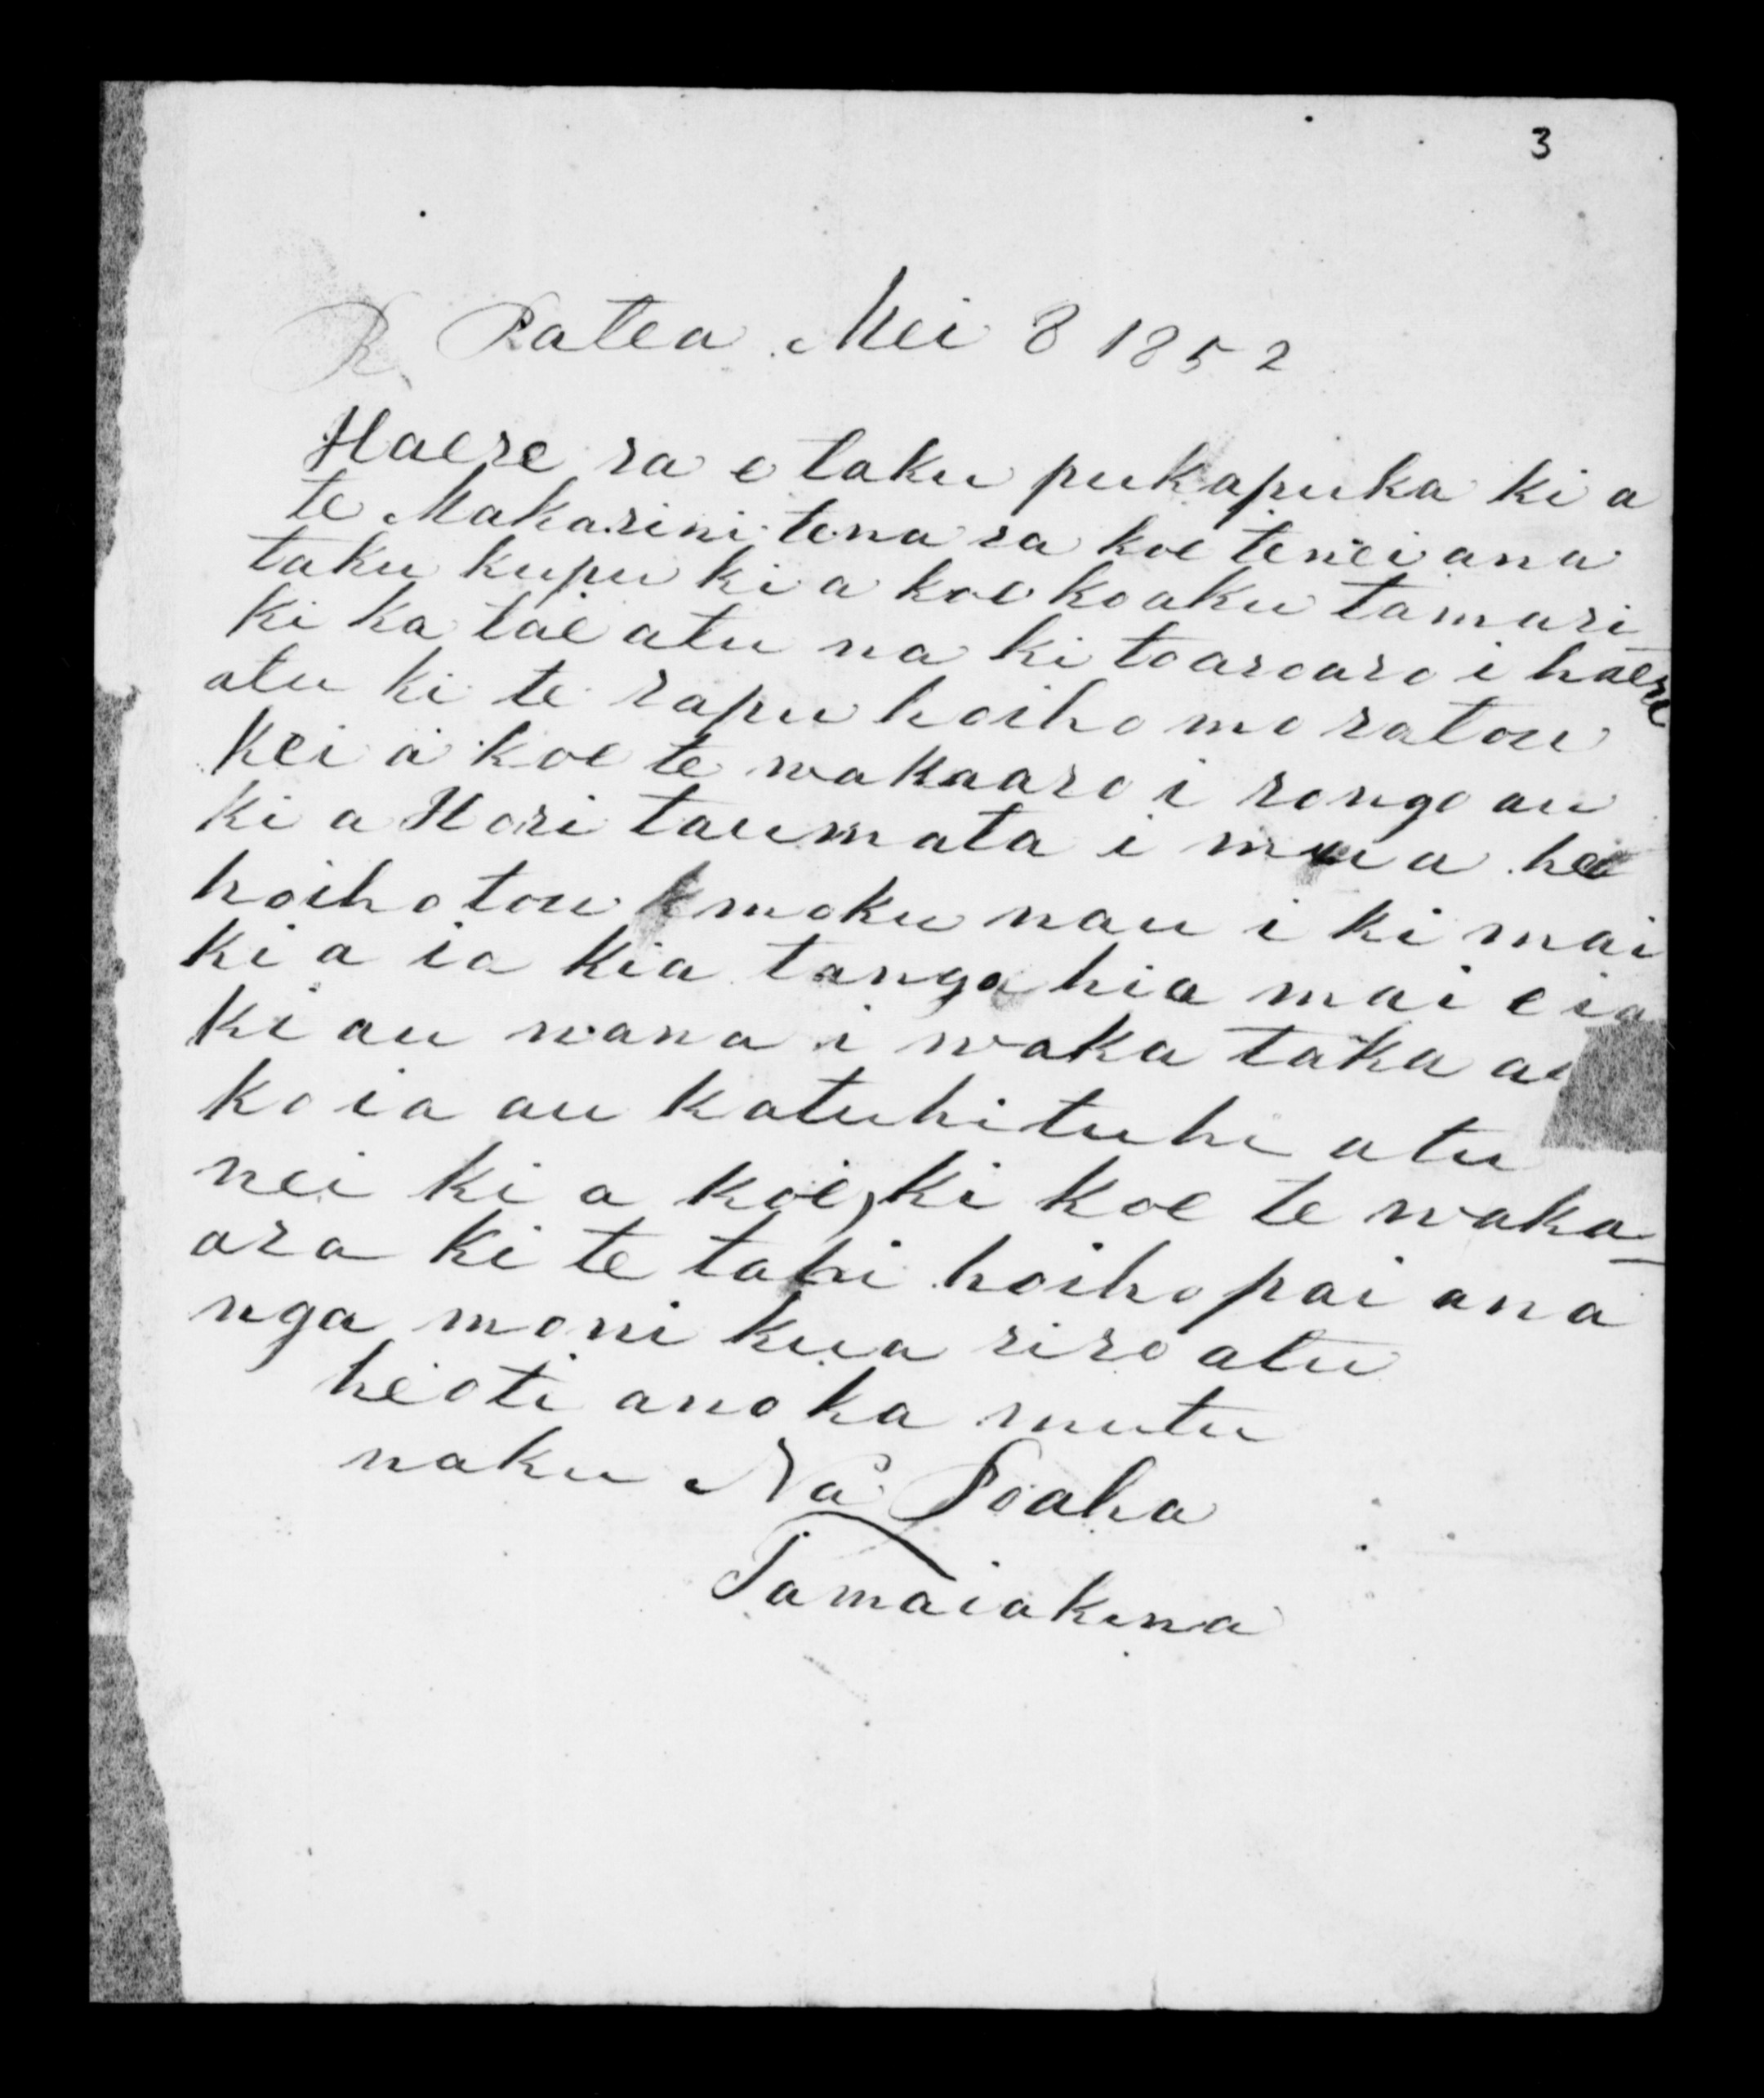 3
P Patea Mei 8 1852
Haere ra e taku pukapuka ki a
te Makarini tena ra koe tenei ana
taku kupu ki a koe ko aku tamari
ki ka tae atu na ki to aroaro i haere
atu ki te rapu hoiho mo ratou
kei a koe te wakaaro i rongo au
ki a Hori taumata i mua he
hoiho tou mo ku nau i ki mai
ki a ia kia tangohia mai e ia
ki au nana i waka taka
ko ia au ka tuhituhi atu
nei ki a koe, ki koe te waka-
ara ki te tahi hoiho pai ana
nga moni kua riro atu
heoti ano ka mutu
naku Na Poaha
Tamaiakina